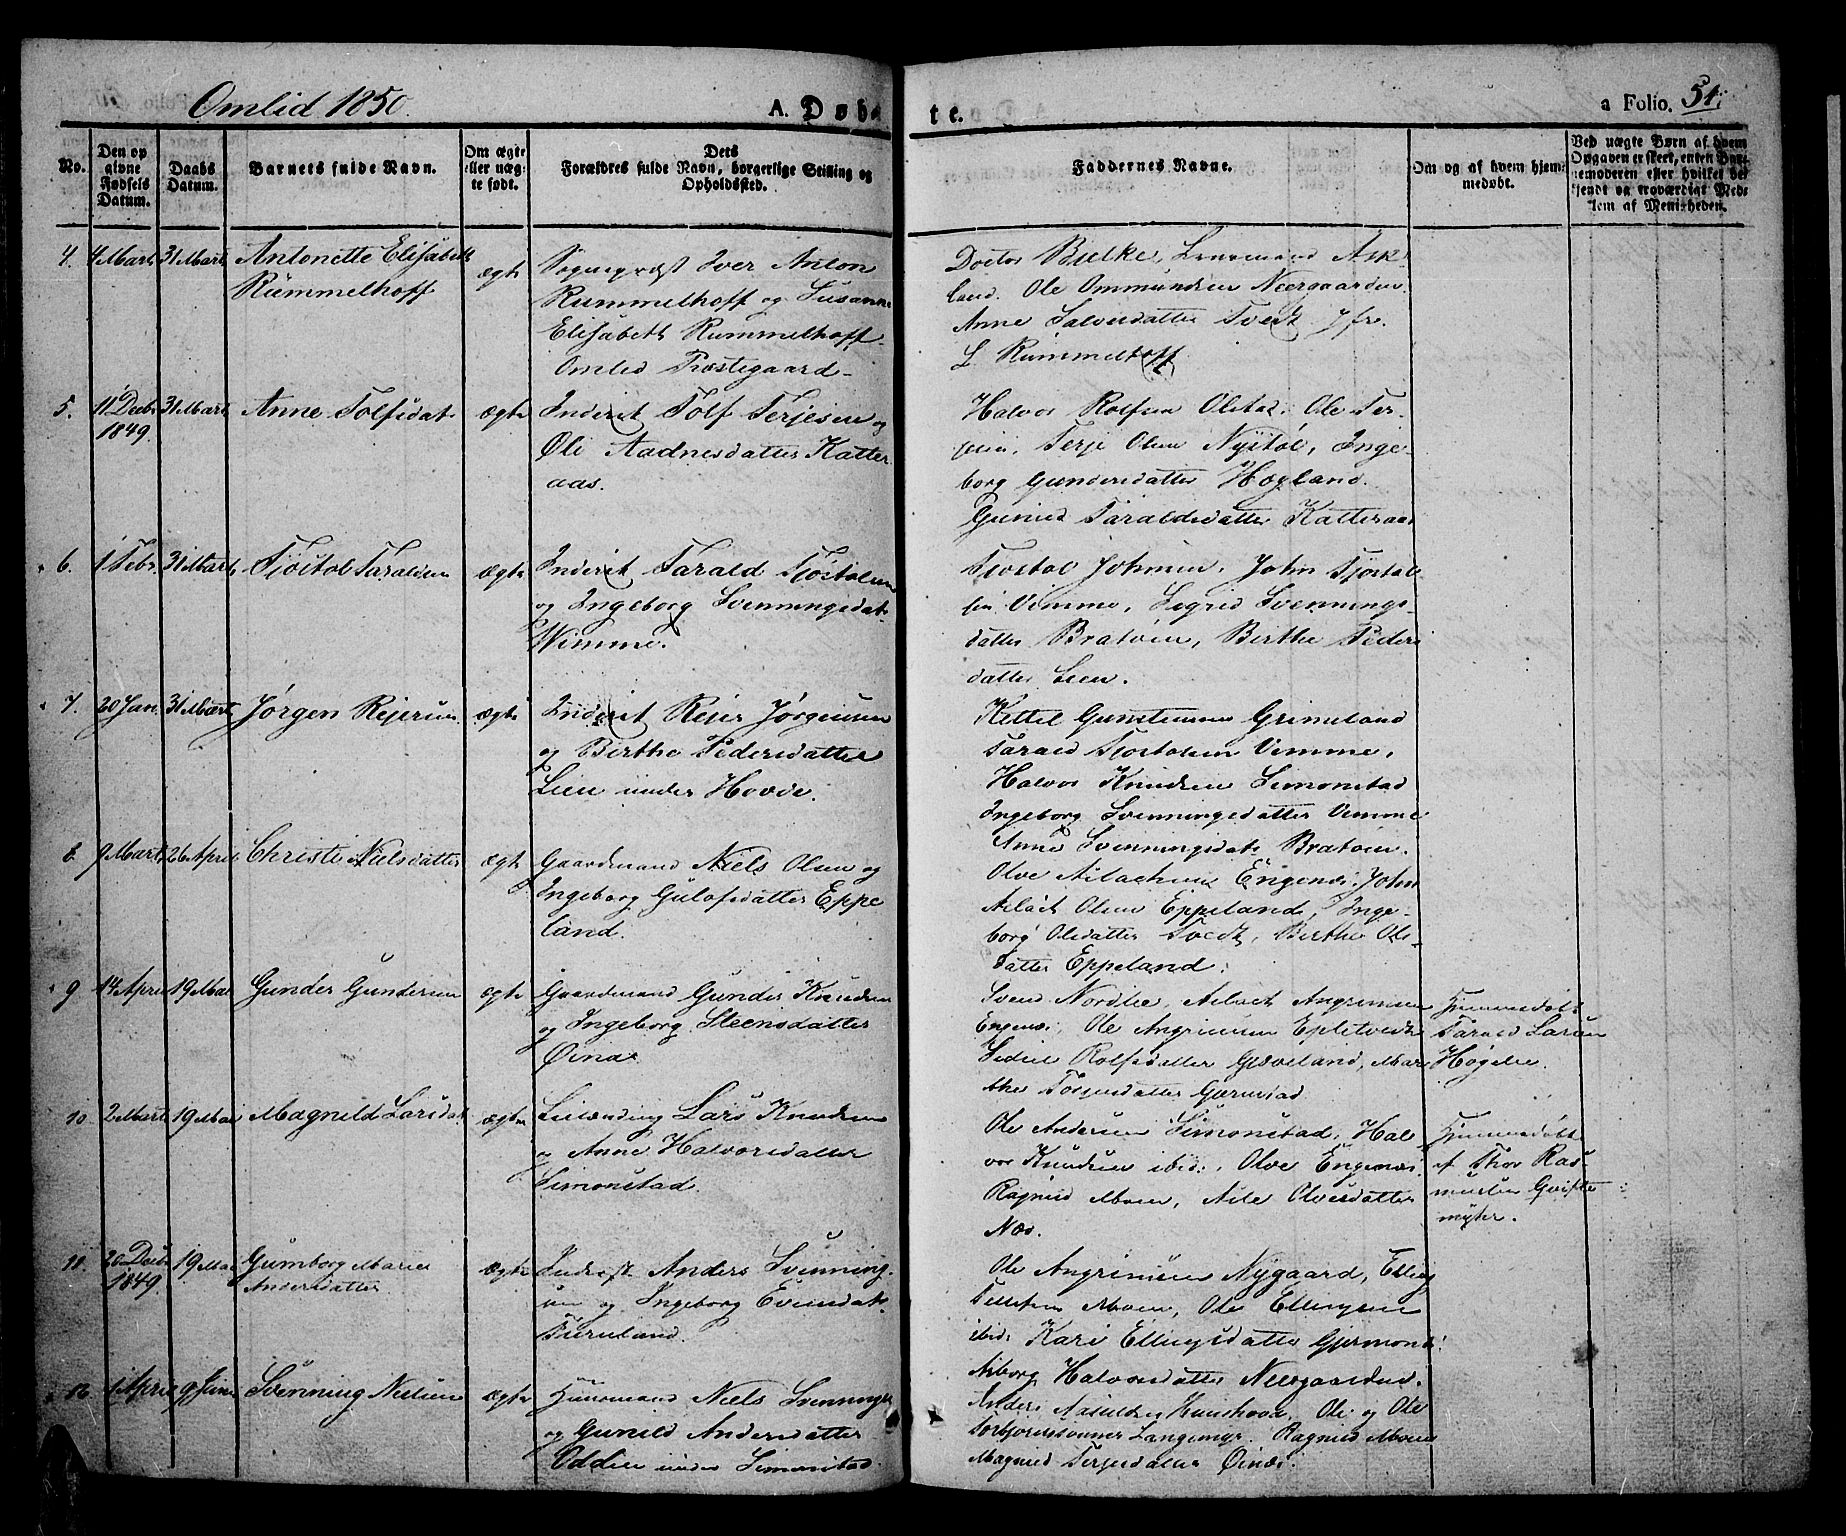 Omlid 1850.
A. Døbte.
a Folio. 51.
No.
Den opgivne Fødsels Datum.
Daabs Datum.
Barnets fulde Navn.
Om ægte eller uægte født.
Dets Forældres fulde Navn, borgerlige Stilling og Opholdssted.
Faddernes Navne.
Om og af hvem hjemmedøbt.
Ved uægte Børn af hvem Opgaven er skeet, enten Barnemoderen eller hvilket bekjendt og troværdigt Medlem af Menigheden.
4. 4 Mart. 31 Mart. Antonette Elisabeth
Rummelhoff
ægte
Sognepræst Iver Anton
Rummelhoff og Susanne
Elisabeth Rummelhoff
Omlid Præstegaard
Doctor Bulke, Lensmand Ask-
land. Ole Ommundsen Neergaarden.
Anne Salvesdatter Tvedt Jfr.
L. Rummelhoff
5. 11 Decbr 1849. 31 Mart. Anne Tolfsdat.
ægte
Inderst Tolf Terjesen og
Øli Aadnesdatter Katter
aas.
Halvor Rolfsen Olstad, Ole Ter-
jesen, Terje Olsen Nystøl, Inge
borg Gundersdatter Hogland.
Gunild Taraldsdatter Katteraas
6. 1 Febr. 31 Mart. Tjøstol Taraldsen
ægte
Inderst Tarald Tjøstolsen
og Ingeborg Svenningsdat.
Wimme.
Tjøstol Johnsen, John Tjøstol
sen Vimme, Sigrid Svennings-
datter Bratøen, Birthe Peders
datter Lien.
7. 20 Jan. 31 Mart. Jørgen Rejersen
ægte
Inderst Rejer Jørgensen
og Birthe Pedersdatter
Lien under Hovde.
Kittel Gunstensen Grimeland
Tarald Tjøstolsen Vimme,
Halvor Knudsen Simonstad
Ingeborg Svenningsdatter Vimme
Anne Svenningsdat. Bratøen.
8. 9 Mart. 26 April Christi Nielsdatter
ægte
Gaardmand Niels Olsen og
Ingeborg Gulofsdatter Eppe
land.
Olve Ailachsen Engenæs, John
Ailact Olsen Eppeland, Inge-
borg Olsdatter Tvedt, Birthe Ols-
datter Eppeland.
9 14 April 19 Mai Gunder Gundersen
ægte
Gaardmand Gunder Knudsen
og Ingeborg Steensdatter
Øinæs
Svend Nordlie, Ailact Angrimsen
Engenæs, Ole Angrimsen Epletvedt
Rolfsdatter Græveland, Mar
the Torjusdatter
Hjemmedøbt
Tarald Larsen
Høgelie
10. 2 Mart. 19 Mai Magnild Larsdat.
ægte
Leilænding Lars Knudsen
og Anne Halvorsdatter
Simonstad.
Ole Andersen Simonstad, Hal
vor Knudsen ibid., Olve Engenæs
Ragnild Moen, Aile Olvesdatter
Næs.
Hjemmedøbt
af Thor Ras-
musen
myhr.
11. 20 Decbr 1849. 19 Mai Gumborg Marie
Andersdatter
ægte
Inderst Anders Svenning-
sen og Ingeborg Evensdat.
Fureland.
Ole Angrimsen Nygaard, Elling
Tellefsen Moen, Ole Ellingsen
ibid. Kari Ellingsdatter
Asborg Halvorsdatter Neergaarden.
12 1 April 9 Juni Svenning Nielsen
ægte
Huusmand Niels Svenningsen
og Gunild Andersdatter
Odden under Simonstad.
Anders og Ole
Torbjørnssønner Langemyr. Ragnild Moen
Magnild Terjesdatter Øinæs.